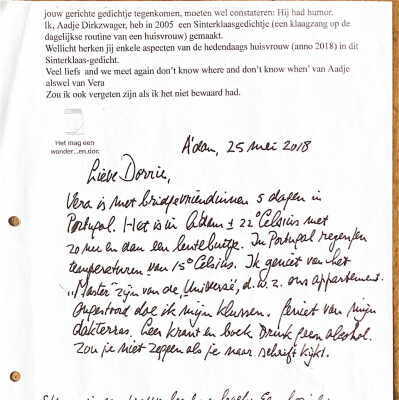 jouw gerichte gedichtje tegenkomen, moeten wel constateren: Hij had humor.
Ik, Aadje Dirkzwager, heb in 2005 een Sinterklaasgedichtje (een klaagzang op de
dagelijkse routine van een huisvrouw) gemaakt.
Wellicht herken jij enkele aspecten van de hedendaags huisvrouw (anno 2018) in dit
Sinterklaas-gedicht.
Veel liefs and we meet again don't know where and don't know when' van Aadje
alswel van Vera
Zou ik ook vergeten zijn als ik het niet bewaard had.
Het mag een
wonder...en.doc
A'dam, 25 mei 2018
Lieve Dorrie,
Vera is met bridgevriendinnen 5 dagen in
Portugal. Het is in A'dam ± 22° Celsius met
zo nu en dan een lentebuitje. In Portugal regen en
temperaturen van 15° Celsius. Ik geniet van het
"Master" zijn van de "Universe", d.w.z. ons appartement.
Ongestoord doe ik mijn klussen. Geniet van mijn
dakterras. Een krant en boek. Drink geen alcohol.
Zou je niet zeggen als je naar schrift kijkt.